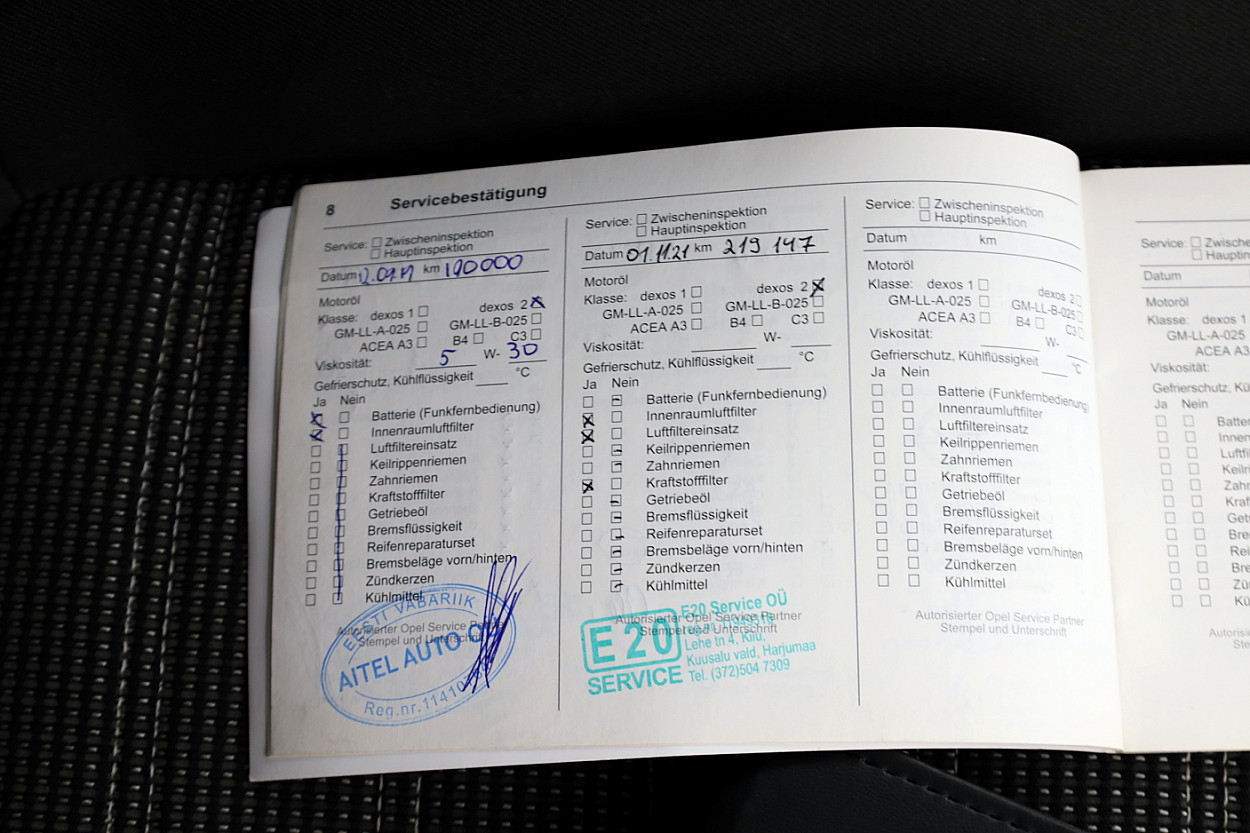 8 Servicebestätigung
Service: Zwischeninspektion
Hauptinspektion
Datum km 190000
Motoröl
Klasse: dexos 1 dexos 2
GM-LL-A-025 GM-LL-B-025
ACEA A3 B4 C3
Viskosität: 5 W- 30
Gefrierschutz, Kühlflüssigkeit °C
Ja Nein
Batterie (Funkfernbedienung)
Innenraumluftfilter
Luftfiltereinsatz
Keilrippenriemen
Zahnriemen
Kraftstofffilter
Getriebeöl
Bremsflüssigkeit
Reifenreparaturset
Bremsbeläge vorn/hinten
Zündkerzen
Kühlmittel
Autorisierter Opel Service
Stempel und Unterschrift
EESTI VABARIIK
AITEL AUTO
Reg.nr.
Service: Zwischeninspektion
Hauptinspektion
Datum 01.11.21 km 219 147
Motoröl
Klasse: dexos 1 dexos 2
GM-LL-A-025 GM-LL-B-025
ACEA A3 B4 C3
Viskosität: W-
Gefrierschutz, Kühlflüssigkeit °C
Ja Nein
Batterie (Funkfernbedienung)
Innenraumluftfilter
Luftfiltereinsatz
Keilrippenriemen
Zahnriemen
Kraftstofffilter
Getriebeöl
Bremsflüssigkeit
Reifenreparaturset
Bremsbeläge vorn/hinten
Zündkerzen
Kühlmittel
Autorisierter Opel Service Partner
Stempel und Unterschrift
E20
SERVICE
E20 Service OÜ
Lehe tn 4, Kiiu,
Kuusalu vald, Harjumaa
Tel. (372)504 7309
Service: Zwischeninspektion
Hauptinspektion
Datum km
Motoröl
Klasse: dexos 1 dexos 2
GM-LL-A-025 GM-LL-B-025
ACEA A3 B4 C3
Viskosität: W-
Gefrierschutz, Kühlflüssigkeit °C
Ja Nein
Batterie (Funkfernbedienung)
Innenraumluftfilter
Luftfiltereinsatz
Keilrippenriemen
Zahnriemen
Kraftstofffilter
Getriebeöl
Bremsflüssigkeit
Reifenreparaturset
Bremsbeläge vorn/hinten
Zündkerzen
Kühlmittel
Autorisierter Opel Service Partner
Stempel und Unterschrift
Service: Zwische
Haupti
Datum
Motoröl
Klasse: dexos 1
GM-LL-A-025
ACEA A3
Viskosität:
Gefrierschutz, Kü
Ja Nein
Batte
Innen
Luftfi
Keilri
Zahn
Kraf
Get
Bre
Rei
Bre
Zü
Kü
Autoris
Ste